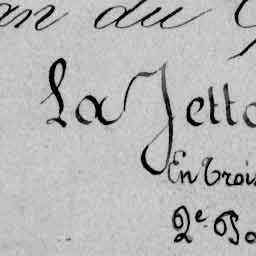 an du
La Jetta
En Trois
2e Pa